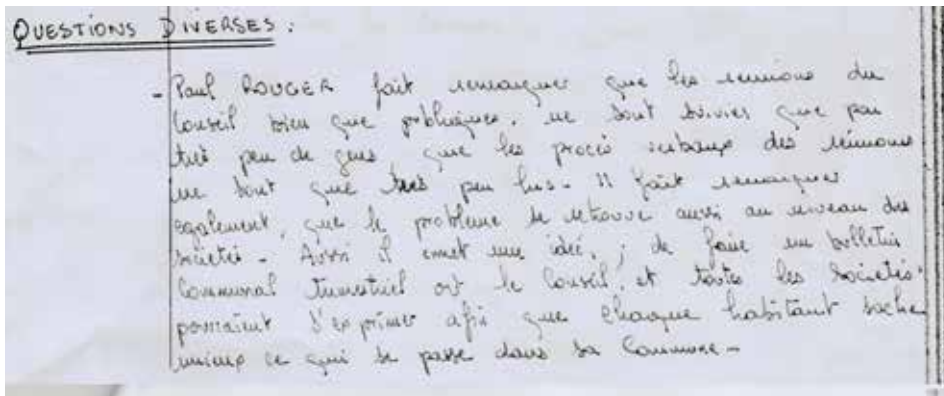 QUESTIONS DIVERSES :
- Paul ROUGER fait remarquer que les reunions du
Conseil bien que publiques, ne sont suivies que par
très peu de gens, que les procès verbaux des réunions
ne sont que très peu lus. Il fait remarquer
egalement, que le probleme se retrouve aussi au niveau des
societés. Aussi il emet une idée, ; de faire un bulletin
Communal trimestriel où le Conseil, et toutes les Societés
pourraient s'exprimer afin que chaque habitant sache
mieux ce qui se passe dans sa Commune -